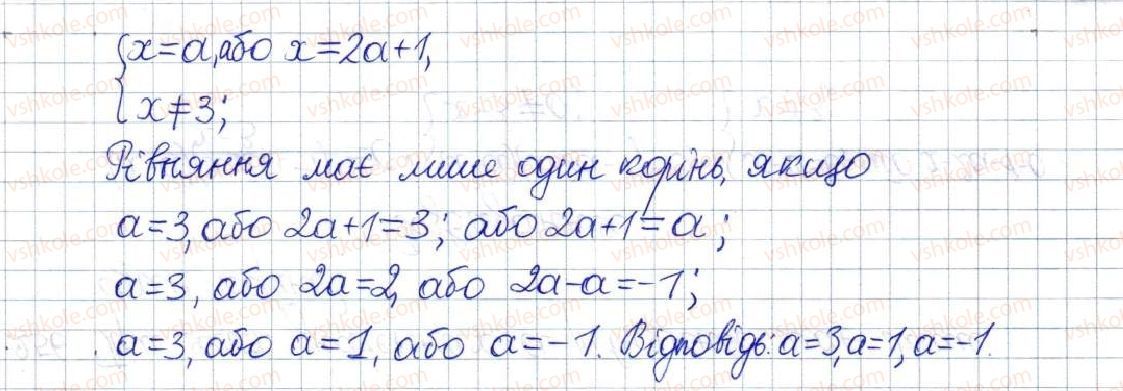 {x=a, або x=2a+1,
{x≠3;
Рівняння має лише один корінь, якщо
a=3, або 2a+1=3; або 2a+1=a;
a=3, або 2a=2, або 2a-a=-1;
a=3, або a=1, або a=-1. Відповідь: a=3, a=1, a=-1.